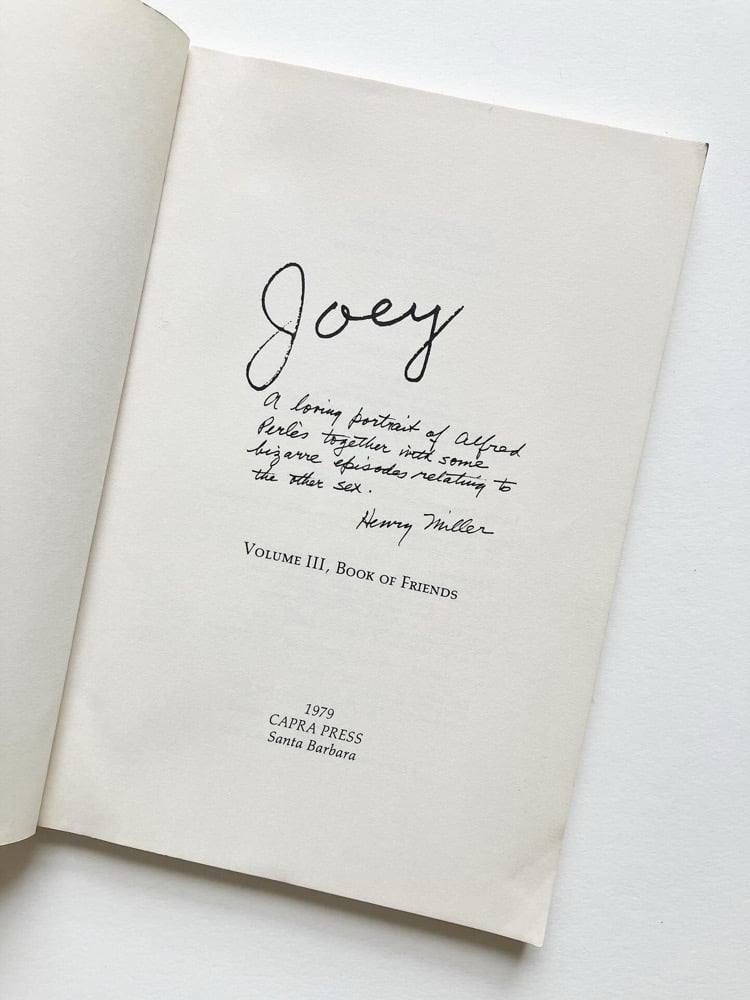 Joey
A loving portrait of Alfred
Perlès together with some
bizarre episodes relating to
the other sex.
Henry Miller
VOLUME III, BOOK OF FRIENDS
1979
CAPRA PRESS
Santa Barbara